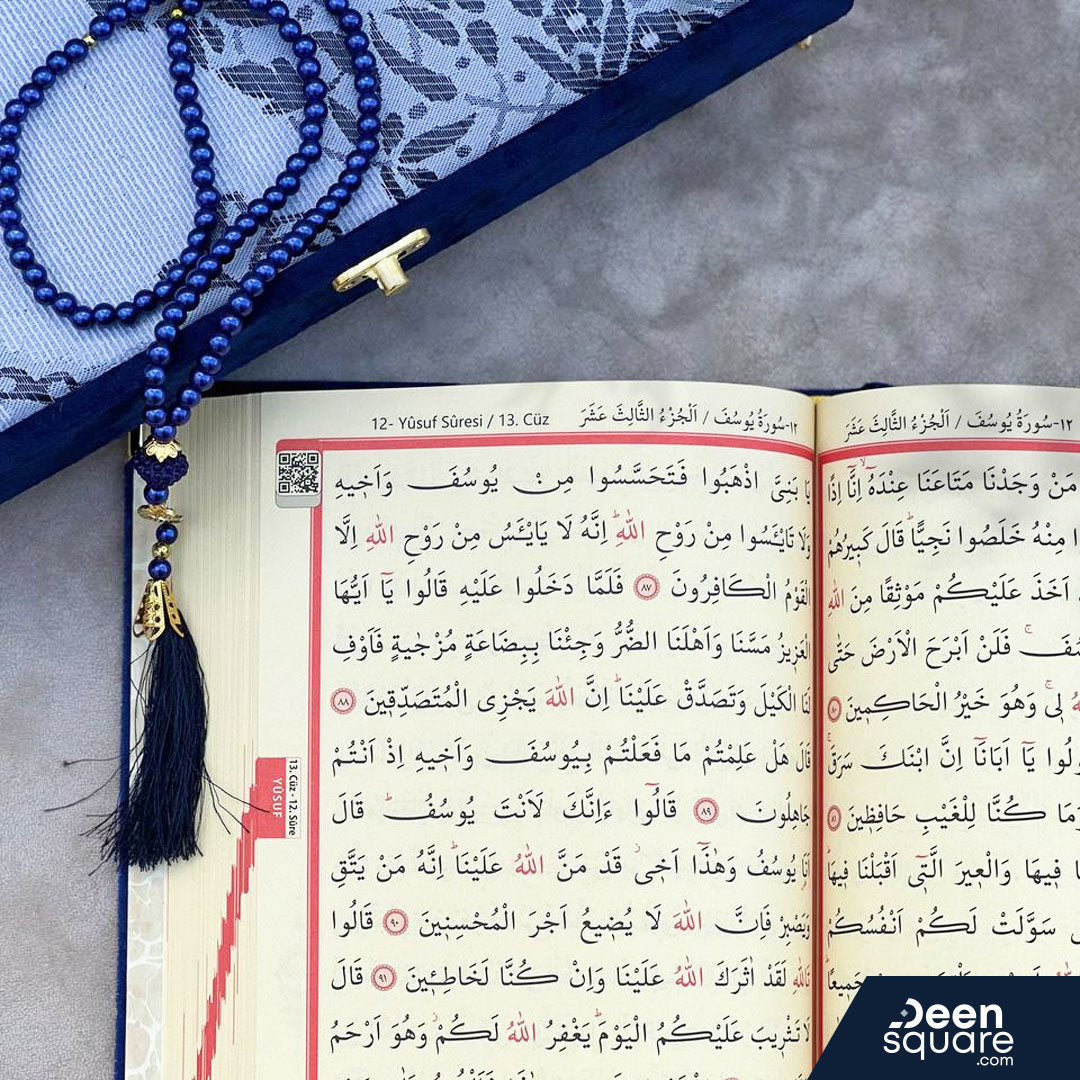 12- Yûsuf Sûresi / 13. Cüz
١٢-سُورَةُ يُوسُفَ / اَلْجُزْءُ الثَّالِثَ عَشَرَ
١٢-سُورَةُ يُوسُفَ / اَلْجُزْءُ الثَّالِثَ عَشَرَ
مَنْ وَجَدْنَا مَتَاعَنَا عِنْدَهُٓ اِنَّٓا اِذًا
مِنْهُ خَلَصُوا نَجِيًّاۜ قَالَ كَبِيرُهُمْ
اَخَذَ عَلَيْكُمْ مَوْثِقًا مِنَ اللّٰهِ
فَلَنْ اَبْرَحَ الْاَرْضَ حَتّٰى
لِىۚ وَهُوَ خَيْرُ الْحَاكِمٖينَ ٨٠
يَٓا اَبَانَٓا اِنَّ ابْنَكَ سَرَقَۚ
كُنَّا لِلْغَيْبِ حَافِظٖينَ ٨١
فٖيهَا وَالْعٖيرَ الَّتٖٓى اَقْبَلْنَا فٖيهَاۜ
سَوَّلَتْ لَكُمْ اَنْفُسُكُمْ
جَمٖيعًاۜ
يَا بَنِىَّ اذْهَبُوا فَتَحَسَّسُوا مِنْ يُوسُفَ وَاَخٖيهِ
وَلَا تَايْـَٔسُوا مِنْ رَوْحِ اللّٰهِۜ اِنَّهُ لَا يَايْـَٔسُ مِنْ رَوْحِ اللّٰهِ اِلَّا
الْقَوْمُ الْكَافِرُونَ ٨٧ فَلَمَّا دَخَلُوا عَلَيْهِ قَالُوا يَٓا اَيُّهَا
الْعَزٖيزُ مَسَّنَا وَاَهْلَنَا الضُّرُّ وَجِئْنَا بِبِضَاعَةٍ مُزْجٰيةٍ فَاَوْفِ
لَنَا الْكَيْلَ وَتَصَدَّقْ عَلَيْنَاۜ اِنَّ اللّٰهَ يَجْزِى الْمُتَصَدِّقٖينَ ٨٨
قَالَ هَلْ عَلِمْتُمْ مَا فَعَلْتُمْ بِيُوسُفَ وَاَخٖيهِ اِذْ اَنْتُمْ
جَاهِلُونَ ٨٩ قَالُٓوا ءَاِنَّكَ لَاَنْتَ يُوسُفُۜ قَالَ
اَنَا۬ يُوسُفُ وَهٰذَٓا اَخٖىۘ قَدْ مَنَّ اللّٰهُ عَلَيْنَاۜ اِنَّهُ مَنْ يَتَّقِ
وَيَصْبِرْ فَاِنَّ اللّٰهَ لَا يُضٖيعُ اَجْرَ الْمُحْسِنٖينَ ٩٠ قَالُوا
تَاللّٰهِ لَقَدْ اٰثَرَكَ اللّٰهُ عَلَيْنَا وَاِنْ كُنَّا لَخَاطِـٖٔينَ ٩١ قَالَ
لَا تَثْرٖيبَ عَلَيْكُمُ الْيَوْمَۜ يَغْفِرُ اللّٰهُ لَكُمْۘ وَهُوَ اَرْحَمُ
13. Cüz - 12. Sûre
YÛSUF
Deen
square
.com